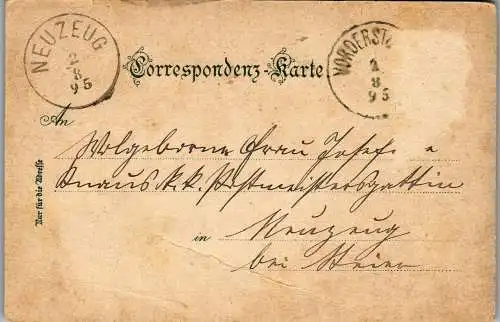 NEUZEUG
2
8
95
Correspondenz-Karte
VORDERST
2
8
95
An
Wolgeborne Frau Josefe
Knaus k. k. Postmeistersgattin
in Neuzeug
bei Steier
Nur für die Adresse